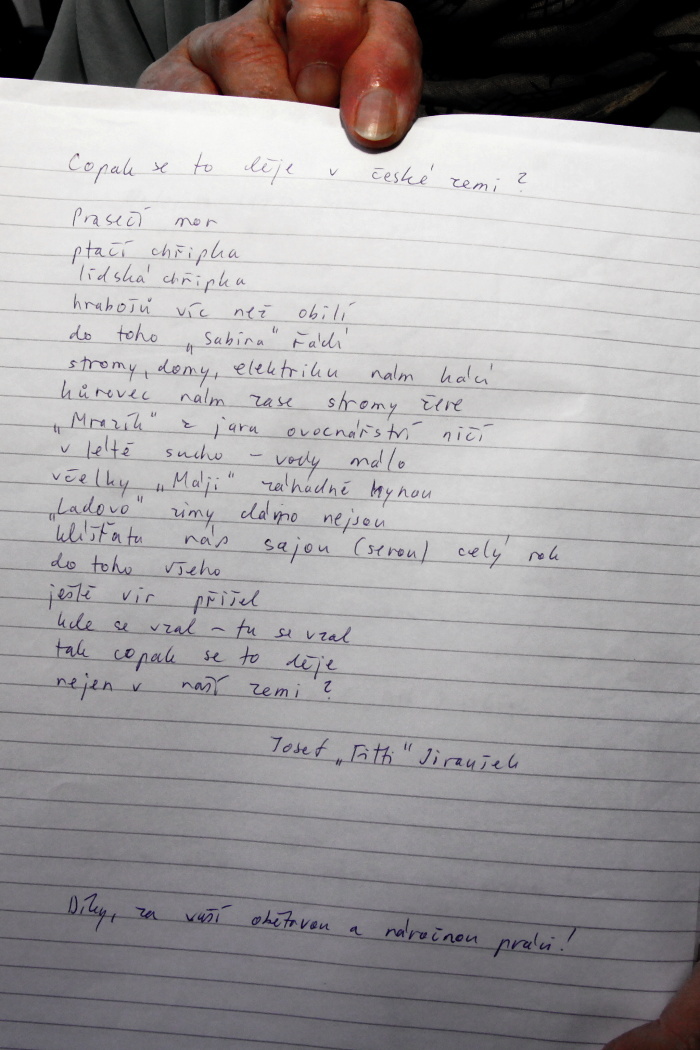 Copak se to děje v české zemi?
Prasečí mor
ptačí chřipka
lidská chřipka
hrabošů víc než obilí
do toho „Sabina“ řádí
stromy, domy, elektriku nám kácí
kůrovec nám zase stromy žere
„Mrazík“ z jara ovocnářství ničí
v létě sucho – vody málo
včelky „Máji“ záhadně hynou
„Ladovo“ zimy dámo nejsou
klíšťata nás sajou (serou) celý rok
do toho všeho
ještě vir přišel
kde se vzal – tu se vzal
tak copak se to děje
nejen v naší zemi?
Josef „Fitti“ Jiránek
Díky, za vaší obětavou a náročnou práci!